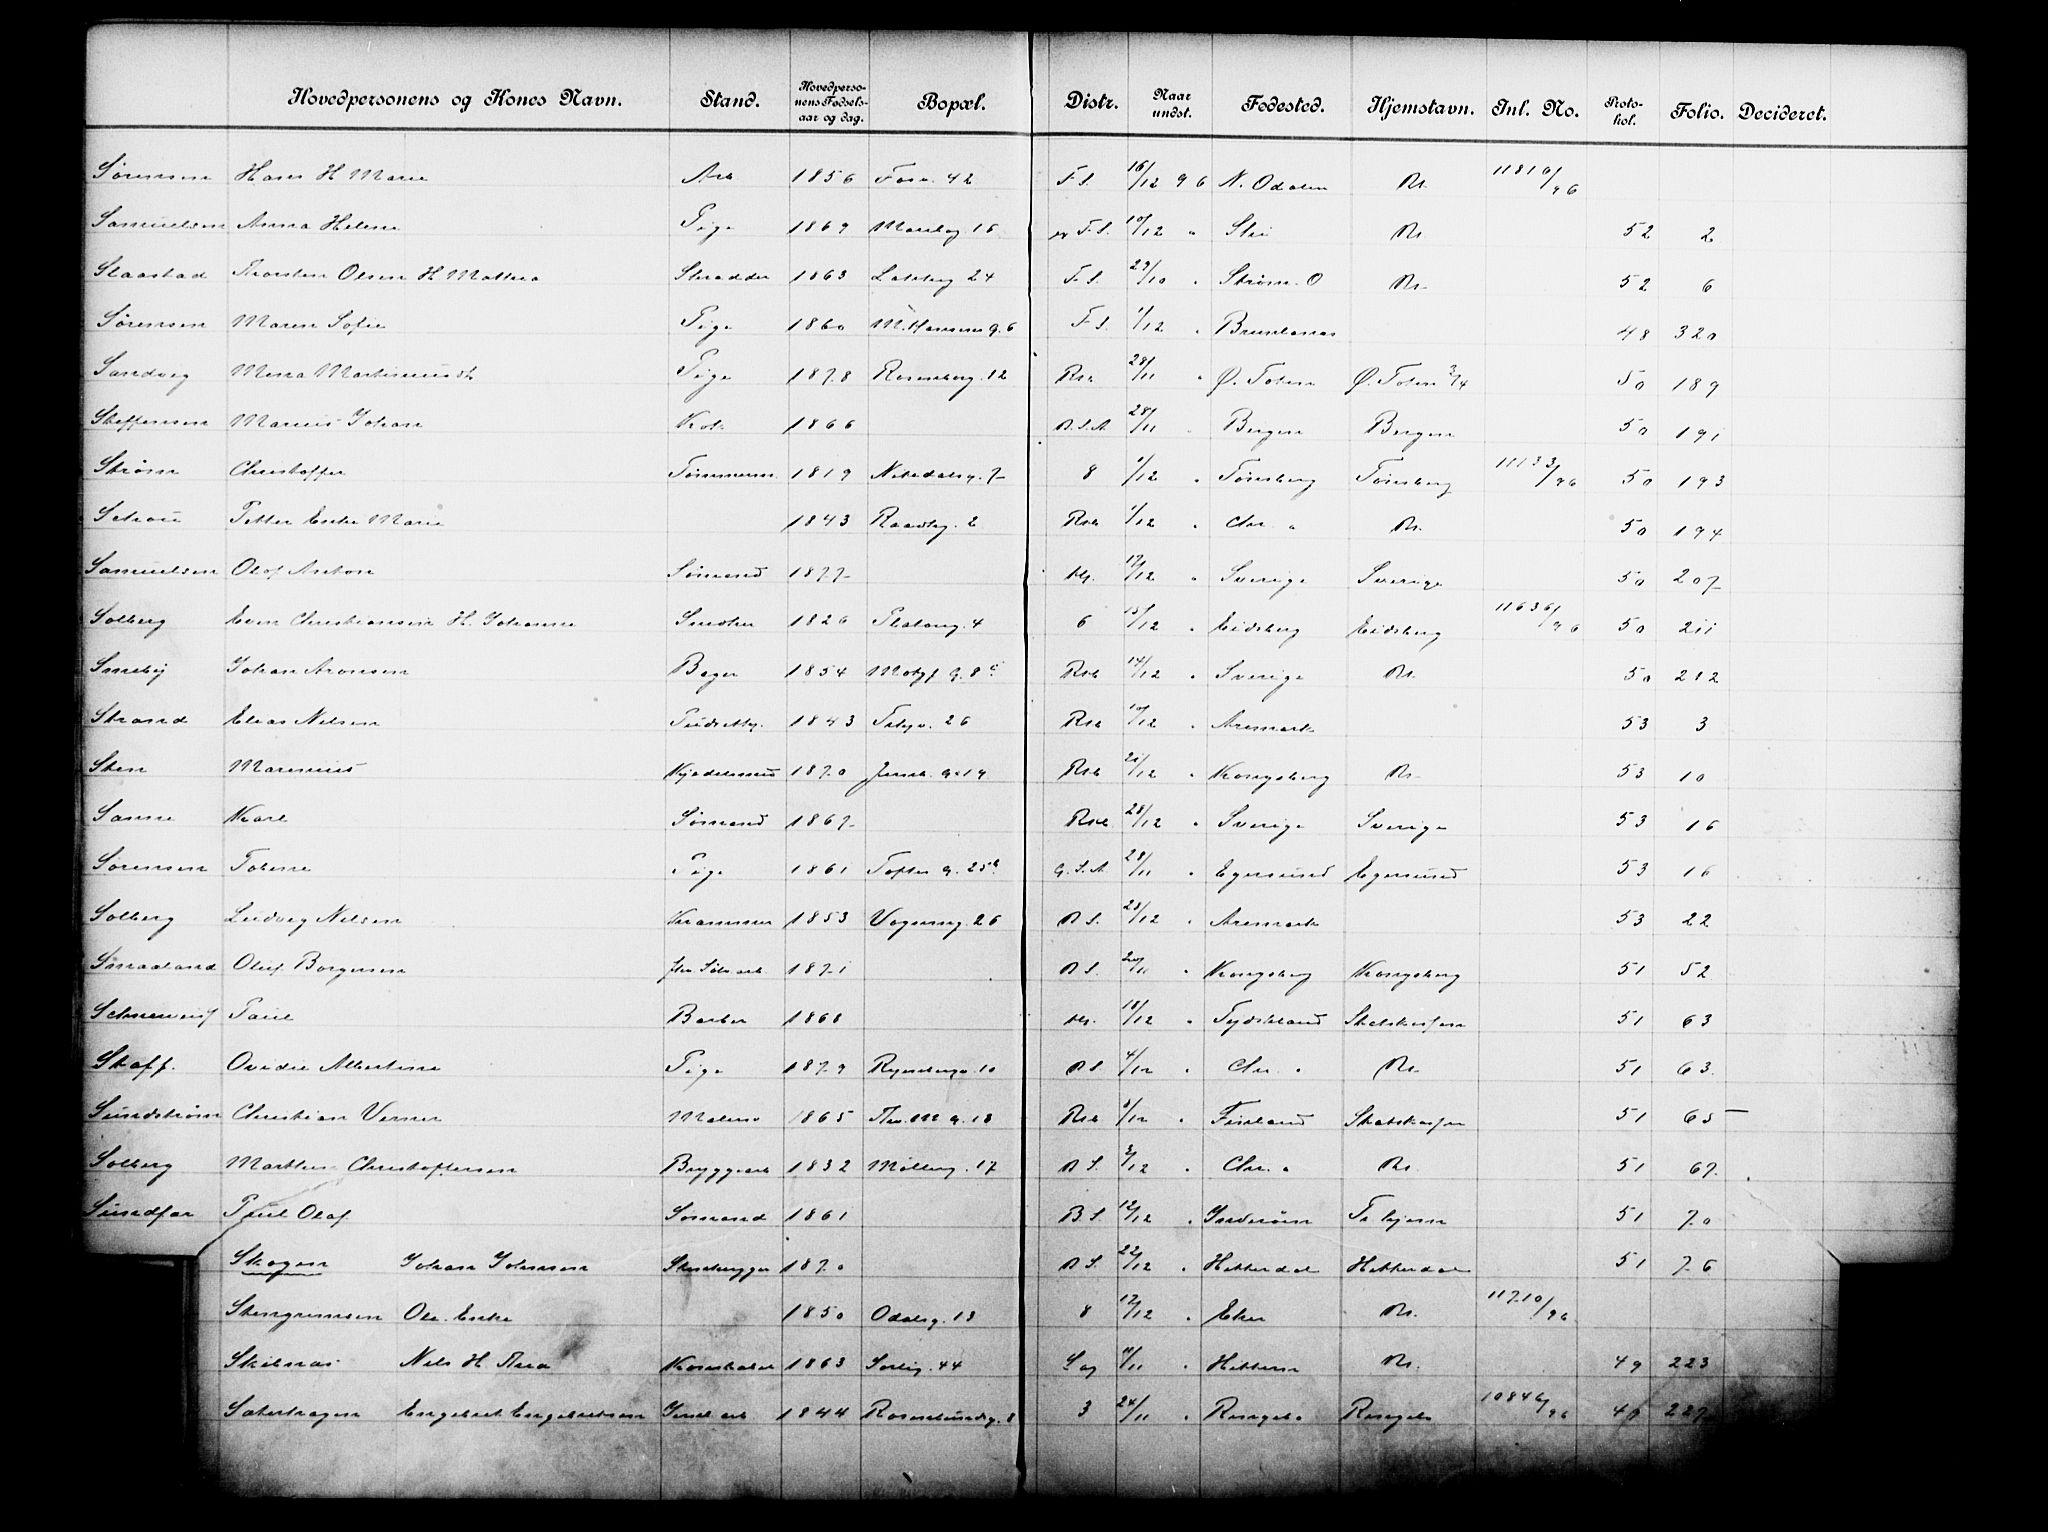 Hovedpersonens og Kones Navn. Stand. Hovedpersonens Fødselsaar og dag. Bopæl. Distr. Naar undst. Fødested. Hjemstavn. Inl. No. Protokol. Folio. Decideret.
Sørensen Hans H Marie Arb 1856 Foss. 42 F.S. 16/12 96 N. Odalen Kr. 11810/96
Samuelsen Anna Helene Pige 1869 16 F.S. 10/12 " Ski Kr. 52 2
Slaastad Thorsten Olsen H. Mathea Skrædder 1863 Lakkeg 24 F.S. 29/10 " Strøm. O Kr. 52 6
Sørensen Maren Sofie Pige 1860 M. Hansens g. 6 F.S. 1/12 " Brunlanæs 48 320
Sandvig Mina Pige 1878 Rosenborg. 12 Rsk 28/11 " Ø. Toten Ø. Toten 3/4 50 189
Steffensen Marius Johan Kok 1866 R.S.A 28/11 " Bergen Bergen 50 191
Strøm Christoffer Tømmerm. 1819 Nittedalsg. 7 8 1/12 " Tønsberg Tønsberg 11133/96 50 193
Schou Petter Enke Marie 1843 Raadhg. 2 Rsk 1/12 " Chr. " Kr. 50 194
Samuelsen Olof Anton Sømand 1877 12/12 " Sverige Sverige 50 207
Solberg Even Christiansen H. Johanne Snedker 1826 Platoug. 4 6 15/12 " Eidsberg Eidsberg 11636/96 50 211
Smeby Johan Aronsen Bager 1854 Motzf g. 8 Rsk 14/12 " Sverige Kr. 50 212
Strand Elias Nilsen 1843 26 Rsk 10/12 " Aremark 53 3
Sten Marenius Kjedelsmed 1870 Jernb. g. 19 Rsk 21/12 " Kongsberg Kr. 53 10
Sanne Karl Sømand 1867 Rsk 28/12 " Sverige Sverige 53 16
Sørensen Tobine Pige 1861 Toftes g. 25 G.S.A 28/11 " Egersund Egersund 53 16
Solberg Ludvig Nilsen Kræmmer 1853 Vognmg. 26 R S. 28/12 " Aremark 53 22
Smaaland Oluf Borgersen 1871 R S. 20/11 " Kongsberg Kongsberg 51 52
Paul Barber 1868 18/12 " Tydskland Statskassen 51 63
Skaff. Ovidie Albertine Pige 1879 10 R S. 4/12 " Chr. " Kr. 51 63
Sundstrøm Christian Verner Malers 1865 Thv. M g. 13 Rsk 5/12 " Finland Statskassen 51 65
Solberg Mathias Christoffersen Bryggearb 1832 Møllerg. 17 R S. 3/12 " Chr. " Kr. 51 67
Sundfær Paul Olaf Sømand 1861 B S. 12/12 " Inderøen Tr hjem 51 70
Skogen Johan Johnsen Stenhugger 1870 R S. 22/12 " Hitterdal Hitterdal 51 76
Stengrimsen Ole. Enke 1850 Odalsg. 13 8 12/12 " Eker Kr. 11710/96
Skilnas Nils H. Thea 1863 Sorlig. 44 Sag 11/11 " Hitteren Kr. 49 223
Sæterhagen Engebret Engebretsen Jernb arb 1844 Rosenlundsg. 8 3 24/11 " Ringebo Ringebo 10846/96 49 227